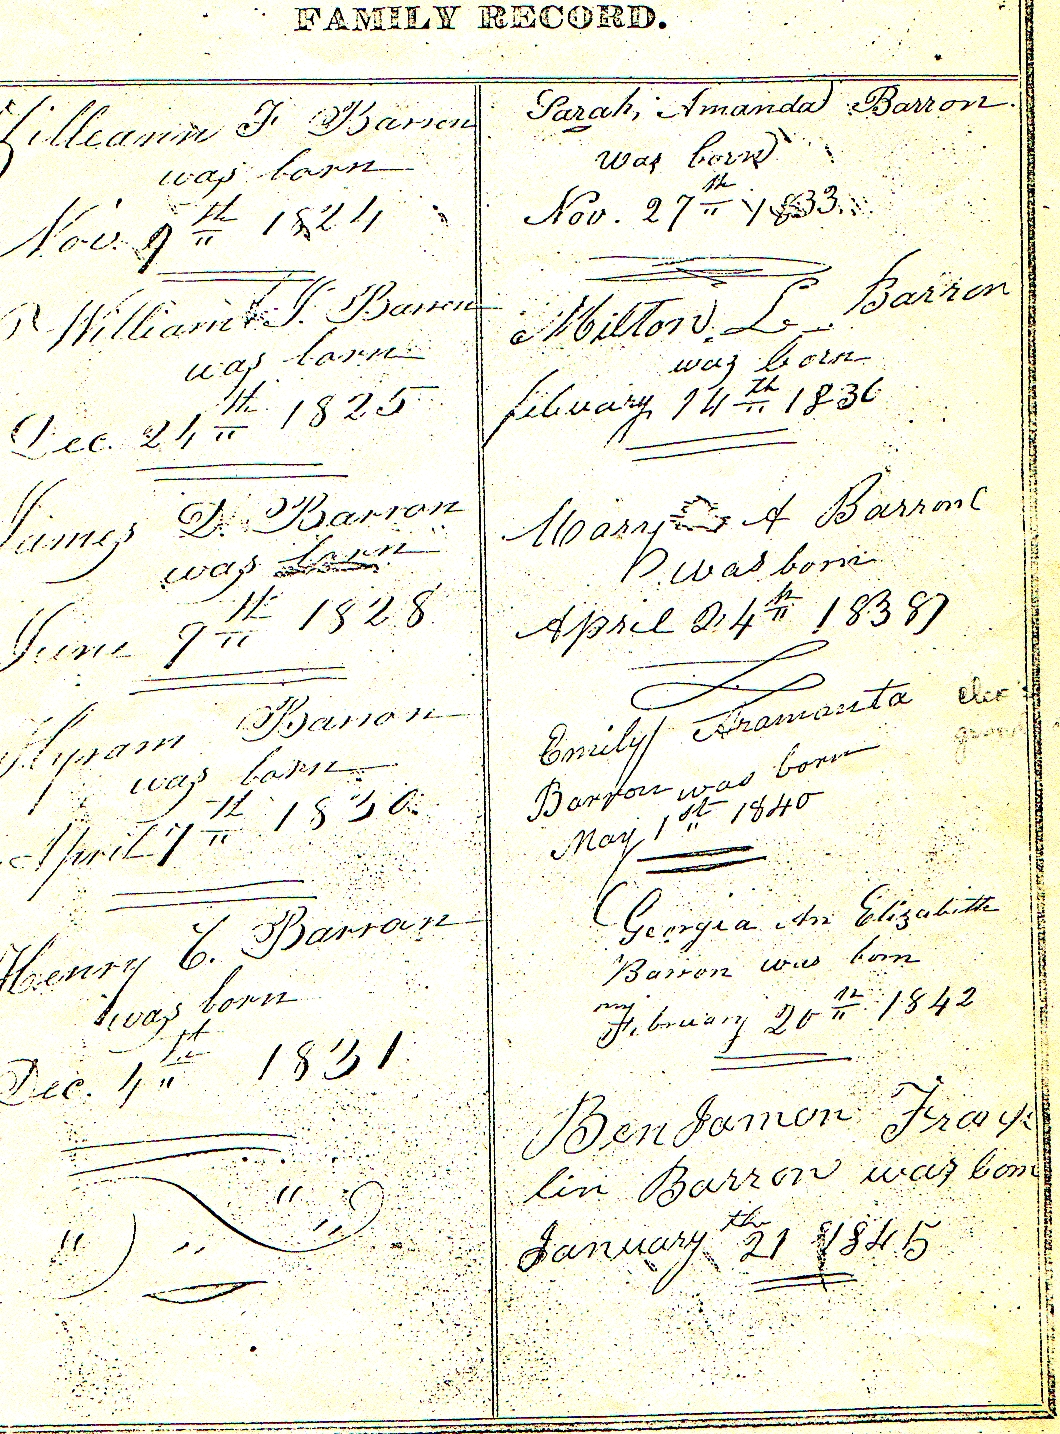 FAMILY RECORD.
Zilleann F Barron
was born
Nov. 9th 1824
William J. Barron
was born
Dec. 24th 1825
James D. Barron
was born
June 9th 1828
Hyram Barron
was born
April 7th 1830
Henry C. Barron
was born
Dec. 4st 1831
Sarah, Amanda Barron.
was born
Nov. 27th 1833
Milton L. Barron
was born
febuary 14th 1836
Mary A Barron
was born
April 24th 1838
Emily Aramanta
Barron was born
May 1st 1840
Georgia An Elizabeth
Barron was born
February 20th 1842
BenJamon Frank
lin Barron was born
January 21th 1845